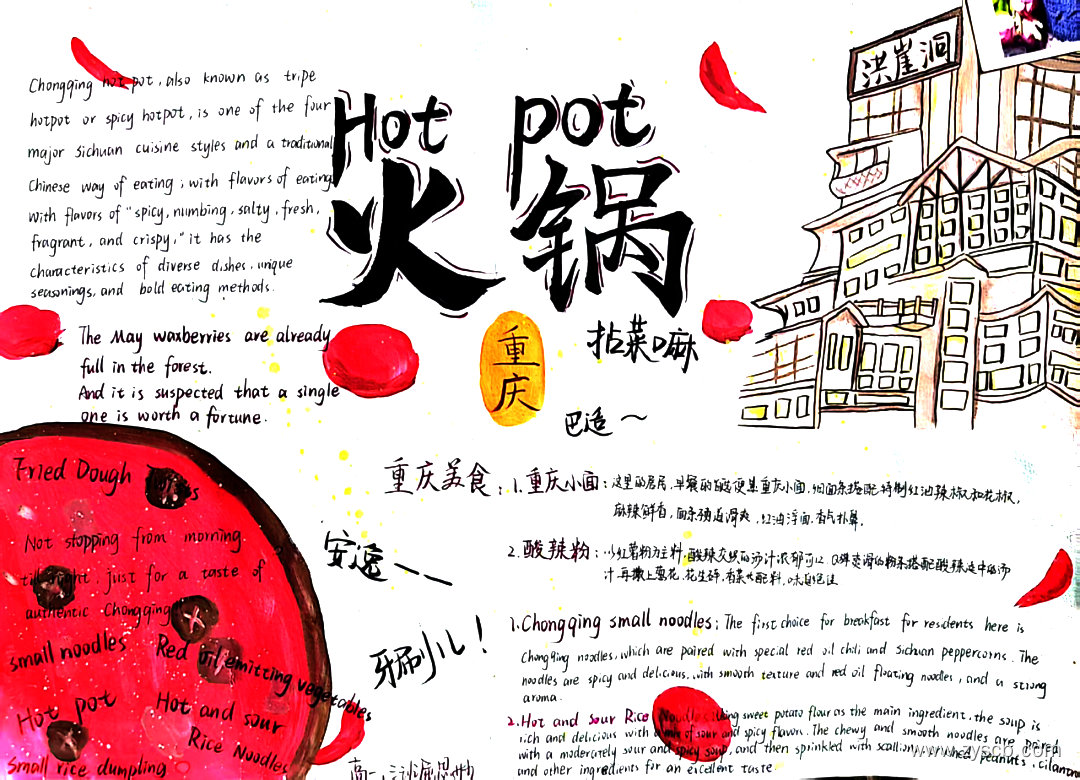 Chongqing hot pot, also known as tripe
hotpot or spicy hotpot, is one of the four
major Sichuan cuisine styles and a traditional
Chinese way of eating; with flavors of eating
with flavors of "spicy, numbing, salty, fresh,
fragrant, and crispy," it has the
characteristics of diverse dishes, unique
seasonings, and bold eating methods.
Hot pot
火锅
重庆
洪崖洞
拈菜口麻
巴适～
The May waxberries are already
full in the forest.
And it is suspected that a single
one is worth a fortune.
安逸～～
牙刷儿！
重庆美食：1.重庆小面：这里的居民，早餐的首选便是重庆小面，细面条搭配特制红油辣椒和花椒，
麻辣鲜香，面条顺道滑爽，红油浮面，香气扑鼻。
2.酸辣粉：以红薯粉为主料，酸辣交织的汤汁浓郁可口，
汁再撒上葱花，花生碎，香菜等配料，味道绝佳
1.Chongqing small noodles: The first choice for breakfast for residents here is
Chongqing noodles, which are paired with special red oil chili and Sichuan peppercorns. The
noodles are spicy and delicious, with smooth texture and red oil floating noodles, and a strong
aroma.
2.Hot and sour Rice Noodles: Using sweet potato flour as the main ingredient, the soup is
rich and delicious with a mix of sour and spicy flavor. The chewy and smooth noodles are paired
with a moderately sour and spicy soup, and then sprinkled with scallions, crushed peanuts, cilantro
and other ingredients for an excellent taste.
Fried Dough
Not stopping from morning
till night, just for a taste of
authentic Chongqing
small noodles
Red oil emitting vegetables
Hot pot
Hot and sour
Rice Noodles
Small rice dumpling
www.zyscb.com